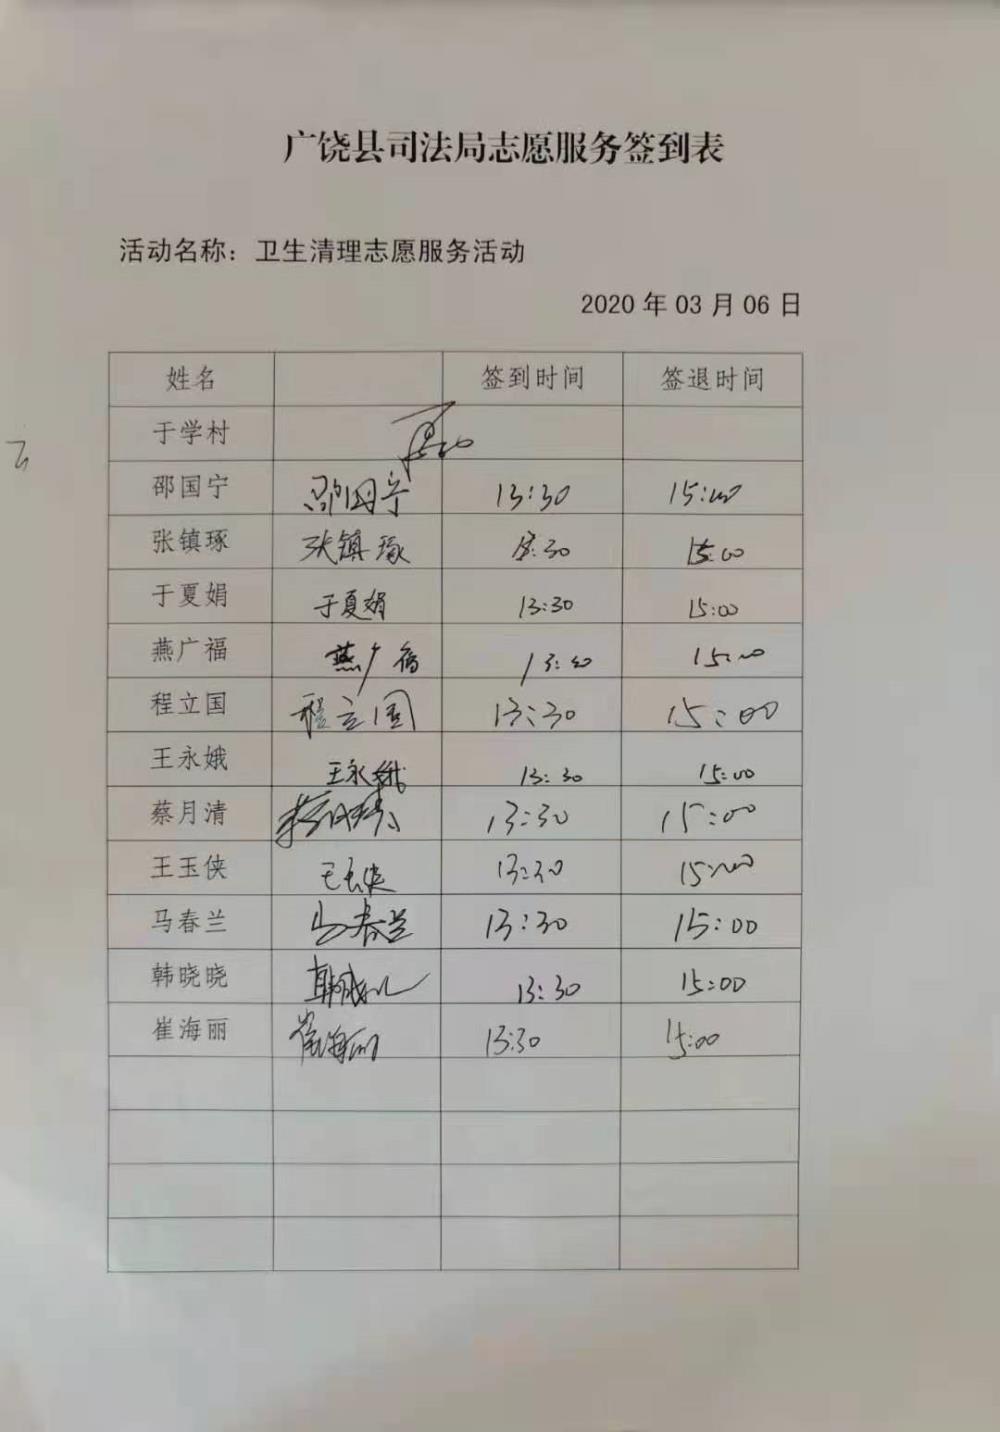 广饶县司法局志愿服务签到表
活动名称：卫生清理志愿服务活动
2020 年 03 月 06 日
姓名 签到时间 签退时间
于学村
邵国宁 邵国宁 13:30 15:00
张镇琢 张镇琢 13:30 15:00
于夏娟 于夏娟 13:30 15:00
燕广福 燕广福 13:30 15:00
程立国 程立国 13:30 15:00
王永娥 王永娥 13:30 15:00
蔡月清 13:30 15:00
王玉侠 王玉侠 13:30 15:00
马春兰 马春兰 13:30 15:00
韩晓晓 13:30 15:00
崔海丽 崔海丽 13:30 15:00